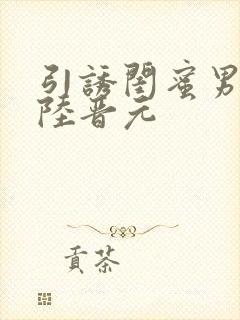 引誘閨蜜男
陸晋元
貢茶